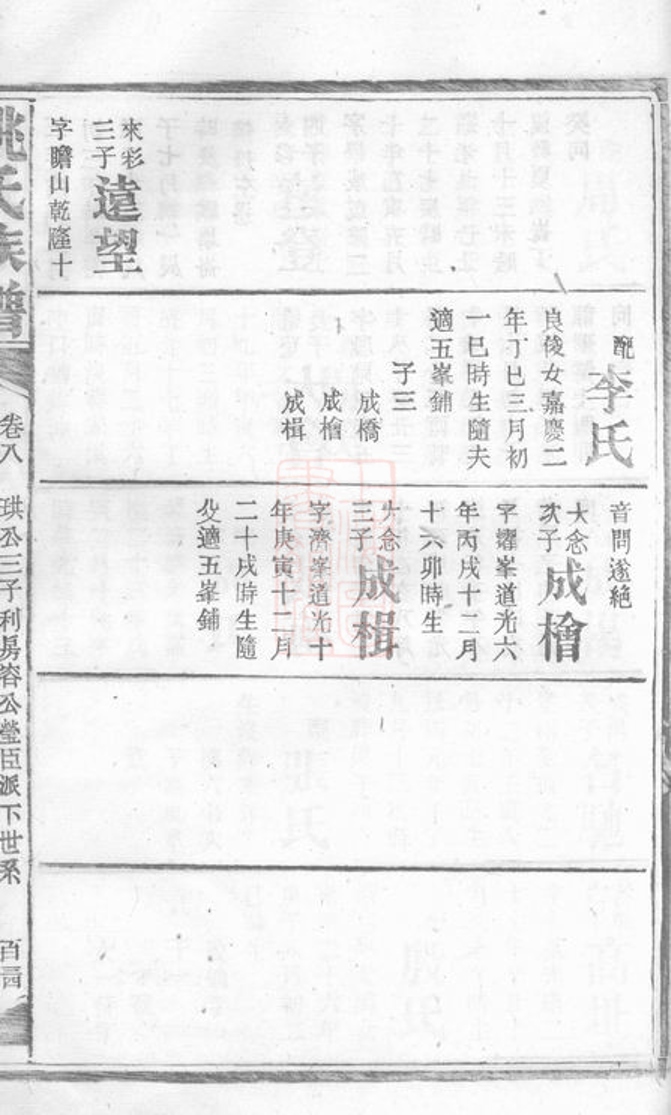 來彩
三子
遠望
字瞻山乾隆十
配
李氏
良俊女嘉慶二
年丁巳三月初
一巳時生隨夫
適五峯鋪
子三
成橋
成檜
成楫
音問遂絕
大念
次子
成檜
字燿峯道光六
年丙戌十二月
十六卯時生
大念
三子
成楫
字濟峯道光十
年庚寅十二月
二十戌時生隨
父適五峯鋪
姚氏族譜
卷八
珙公三子利房容公瑩臣派下世系